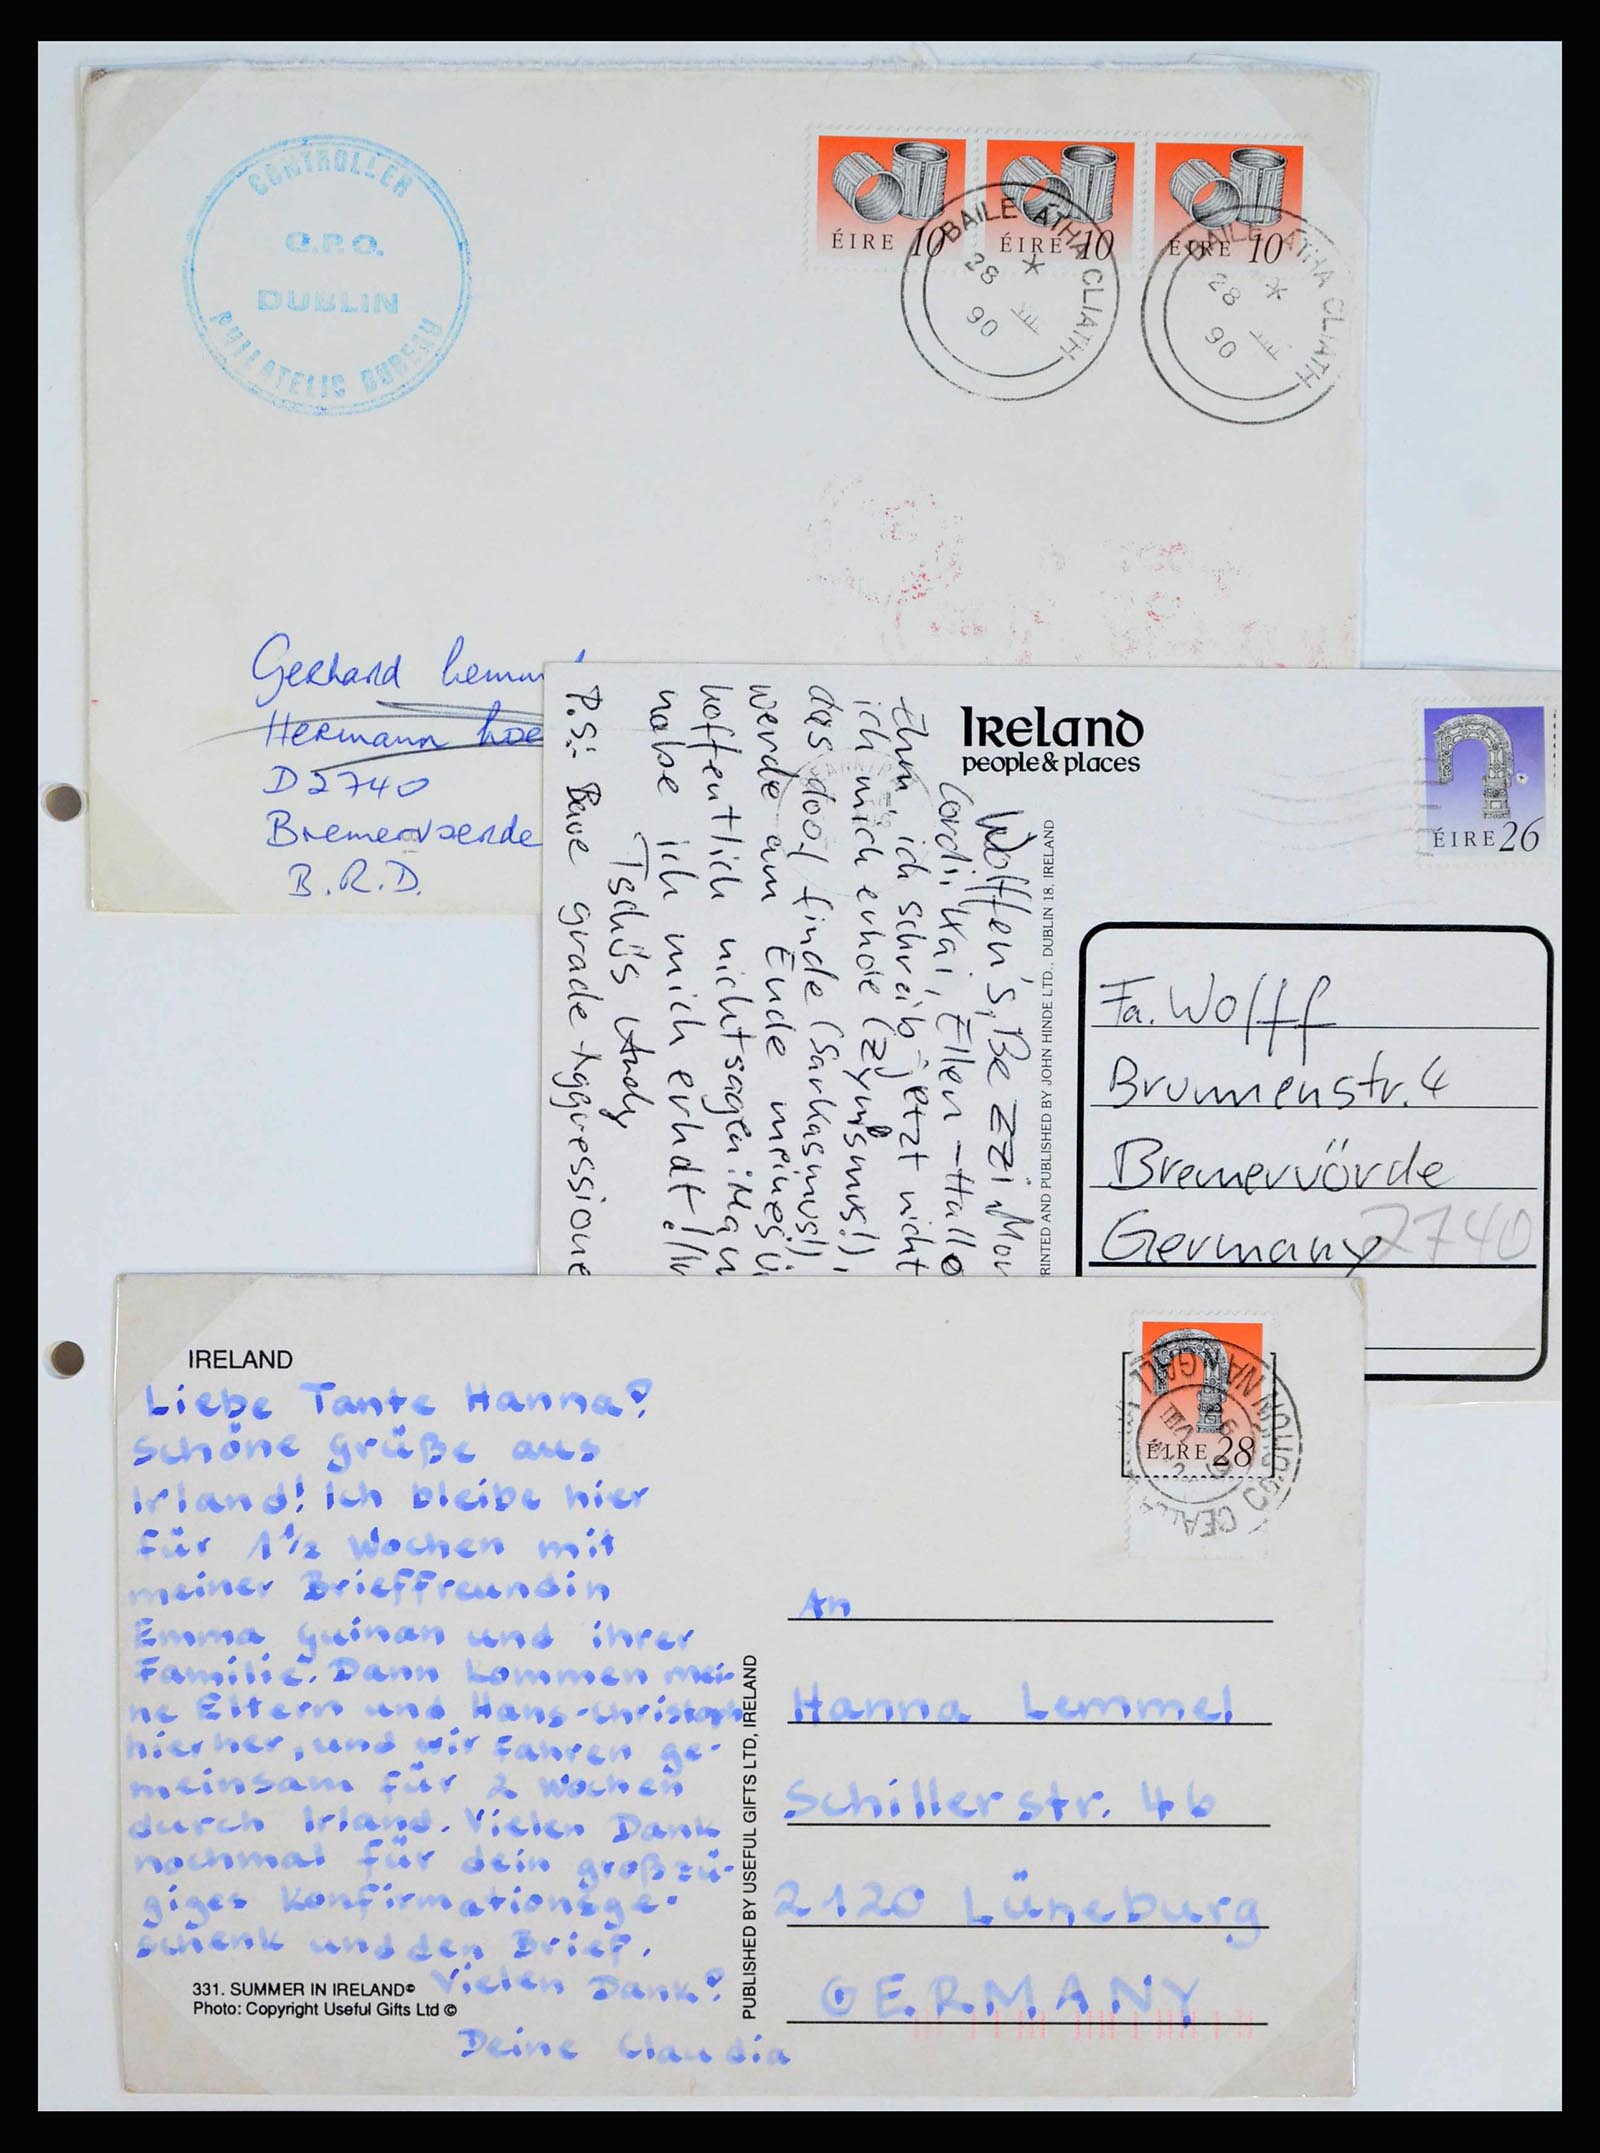 CONTROLLER
G.P.O.
DUBLIN
PHILATELIC BUREAU
ÉIRE 10
ÉIRE 10
ÉIRE 10
BAILE ÁTHA CLIATH
28
90
BAILE ÁTHA CLIATH
28
90
Gerhard
Hermann
D2740
B.R.D.
Ireland
people & places
ÉIRE 26
Wolffen's,
Ellen - Hallo
Ehm, ich schreib jetzt nicht
ich mich erhole (Zynismus!),
das doof finde (Sarkasmus!)
werde am Ende meines
hoffentlich nicht sagen:
habe ich mich erholt!
Tschüs Andy
P.S.: grade Aggressione
RINTED AND PUBLISHED BY JOHN HINDE LTD., DUBLIN 18, IRELAND
Fa. Wolff
Brunnenstr. 4
Bremervörde
Germany 2740
IRELAND
Liebe Tante Hanna!
Schöne Grüße aus
Irland! Ich bleibe hier
für 1 1/2 Wochen mit
meiner Brieffreundin
Emma Guinan und ihrer
Familie. Dann kommen mei-
ne Eltern und Hans-Christoph
hierher, und wir fahren ge-
meinsam für 2 Wochen
durch Irland. Vielen Dank
nochmal für dein großzü-
giges Konfirmationsge-
schenk und den Brief.
Vielen Dank!
Deine Claudia
331. SUMMER IN IRELAND©
Photo: Copyright Useful Gifts Ltd ©
PUBLISHED BY USEFUL GIFTS LTD, IRELAND
ÉIRE 28
An
Hanna Lemmel
Schillerstr. 4b
2120 Lüneburg
GERMANY